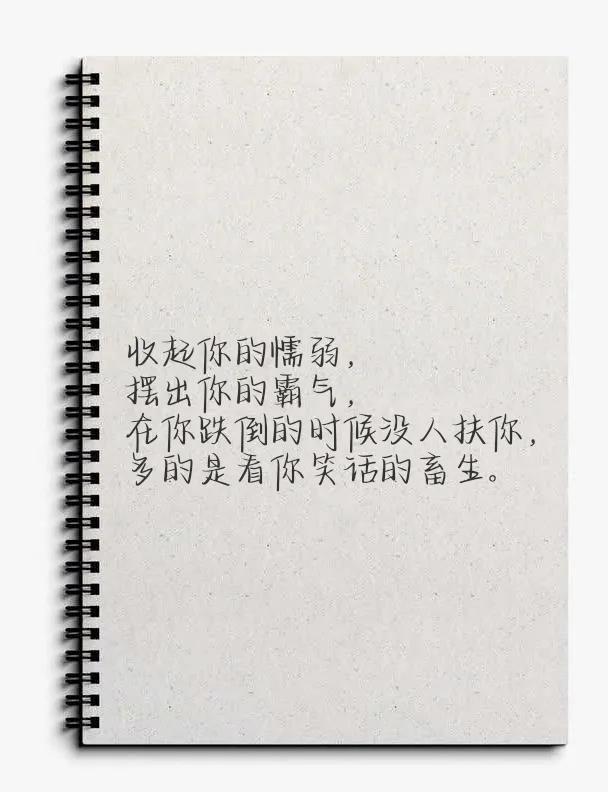 收起你的懦弱，
摆出你的霸气，
在你跌倒的时候没人扶你，
多的是看你笑话的畜生。